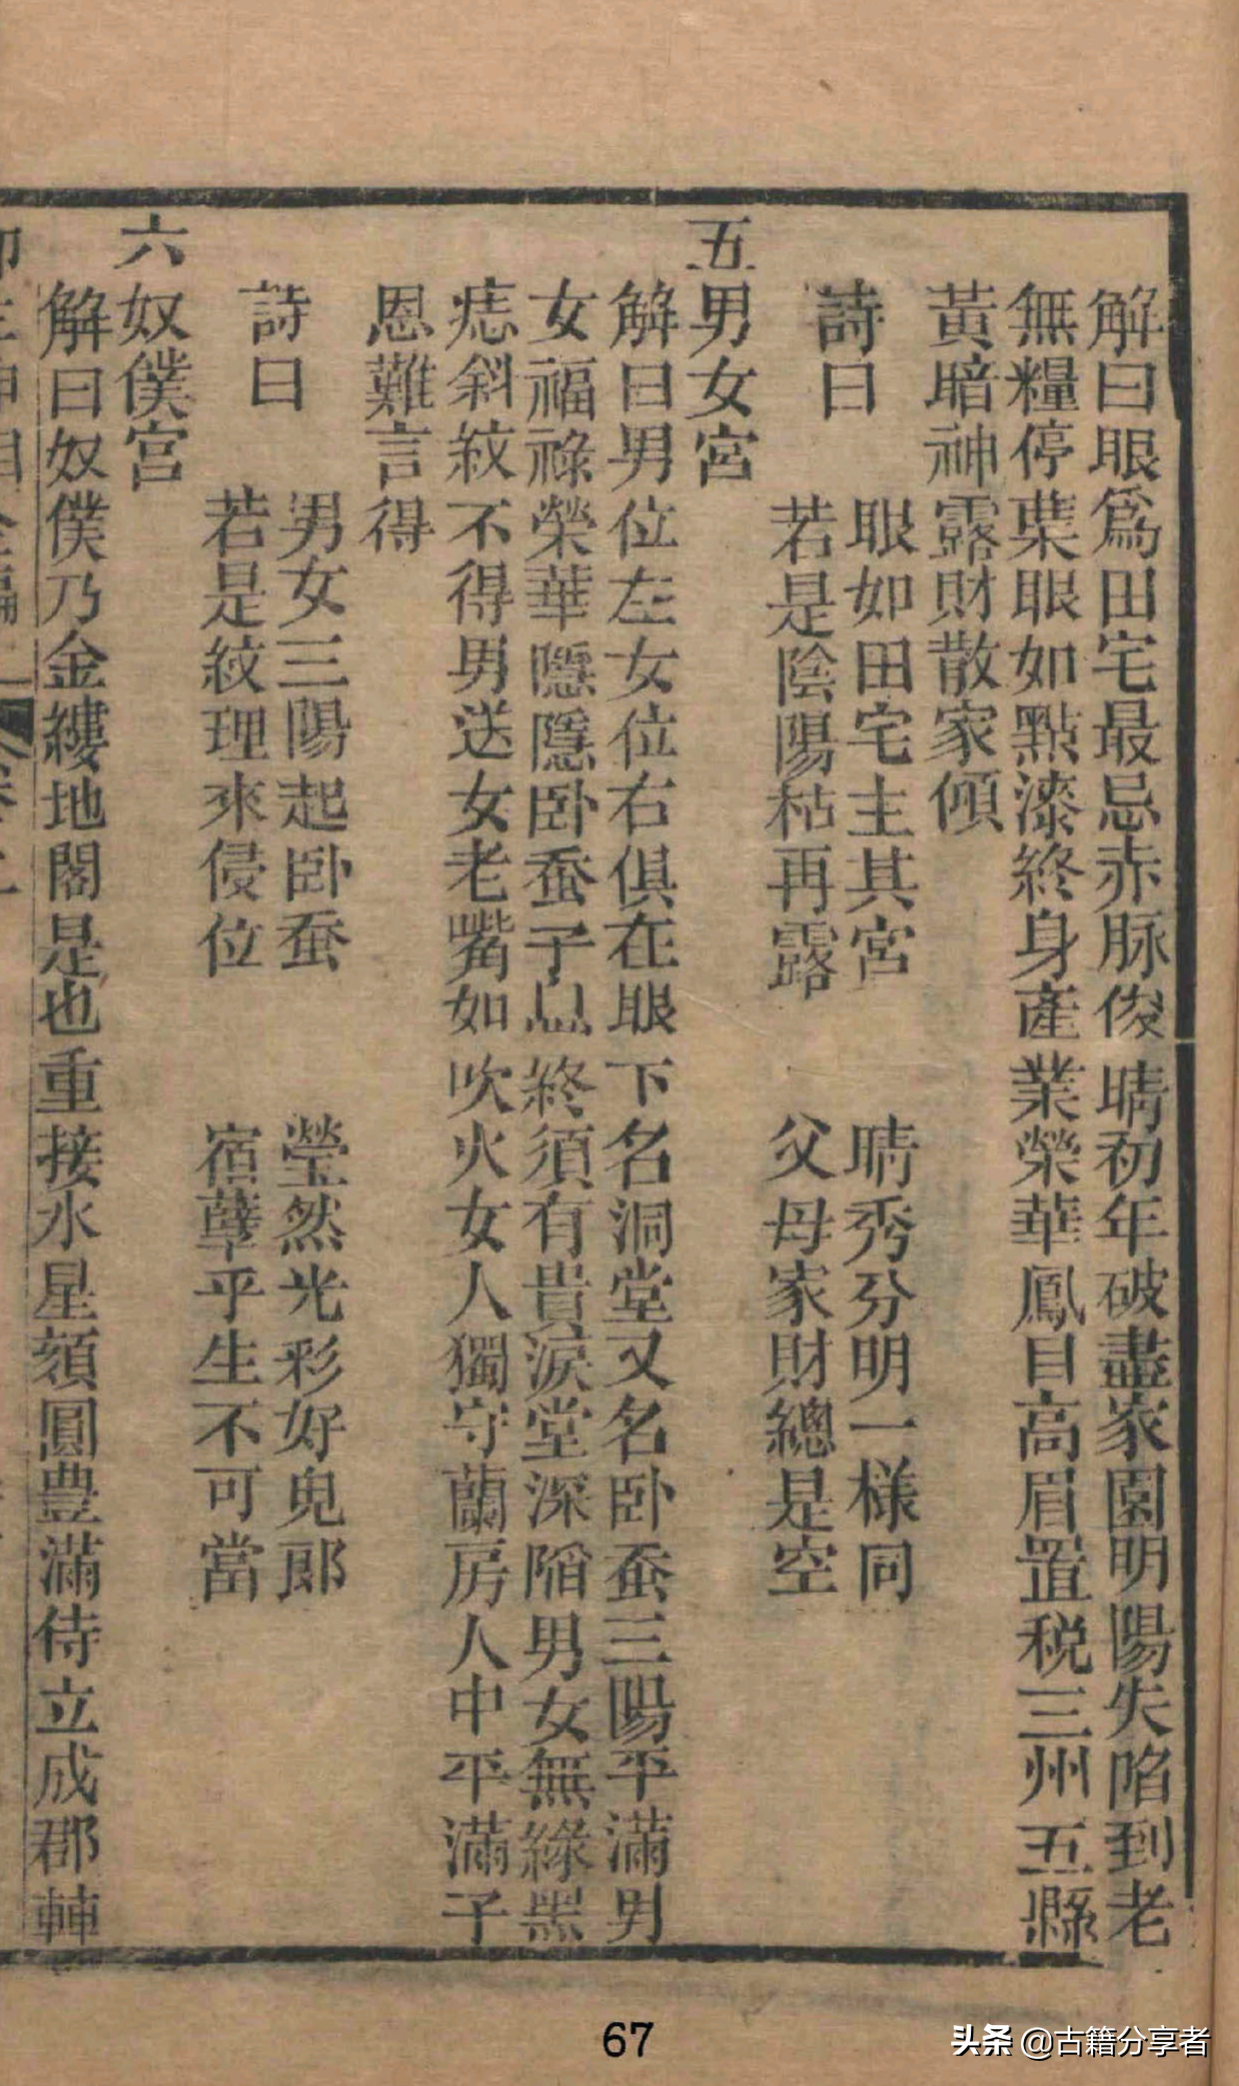 解曰眼爲田宅最忌赤脉俊睛初年破盡家園明陽失陷到老
無糧停葉眼如點漆終身產業榮華鳳目高眉置税三州五縣
黃暗神露財散家傾
詩曰
眼如田宅主其宮 睛秀分明一樣同
若是陰陽枯再露 父母家財總是空
五男女宮
解曰男位左女位右俱在眼下名洞堂又名卧蚕三陽平滿男
女福祿榮華隱隱卧蚕子息終須有貴淚堂深陷男女無緣黑
痣斜紋不得男送女老嘴如吹火女人獨守蘭房人中平滿子
恩難言得
詩曰
男女三陽起卧蚕 瑩然光彩好兒郎
若是紋理來侵位 宿孽乎生不可當
六奴僕宮
解曰奴僕乃金縷地閣是也重接水星頦圓豊滿侍立成郡輔
67
头条 @古籍分享者